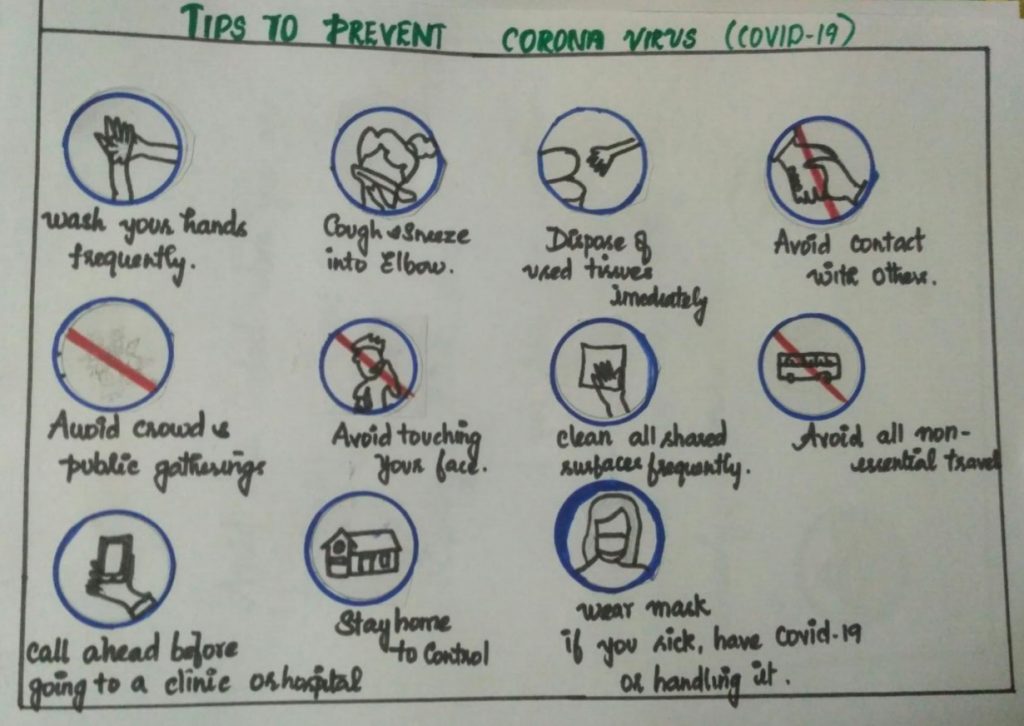 TIPS TO PREVENT CORONA VIRUS (COVID-19)
wash your hands
frequently.
Cough & Sneeze
into Elbow.
Dispose of
used tissues
imediately
Avoid contact
with others.
Avoid crowd &
public gatherings
Avoid touching
your face.
clean all shared
surfaces frequently.
Avoid all non-
essential travel
call ahead before
going to a clinic or hospital
Stay home
to Control
wear mask
if you sick, have Covid-19
or handling it.